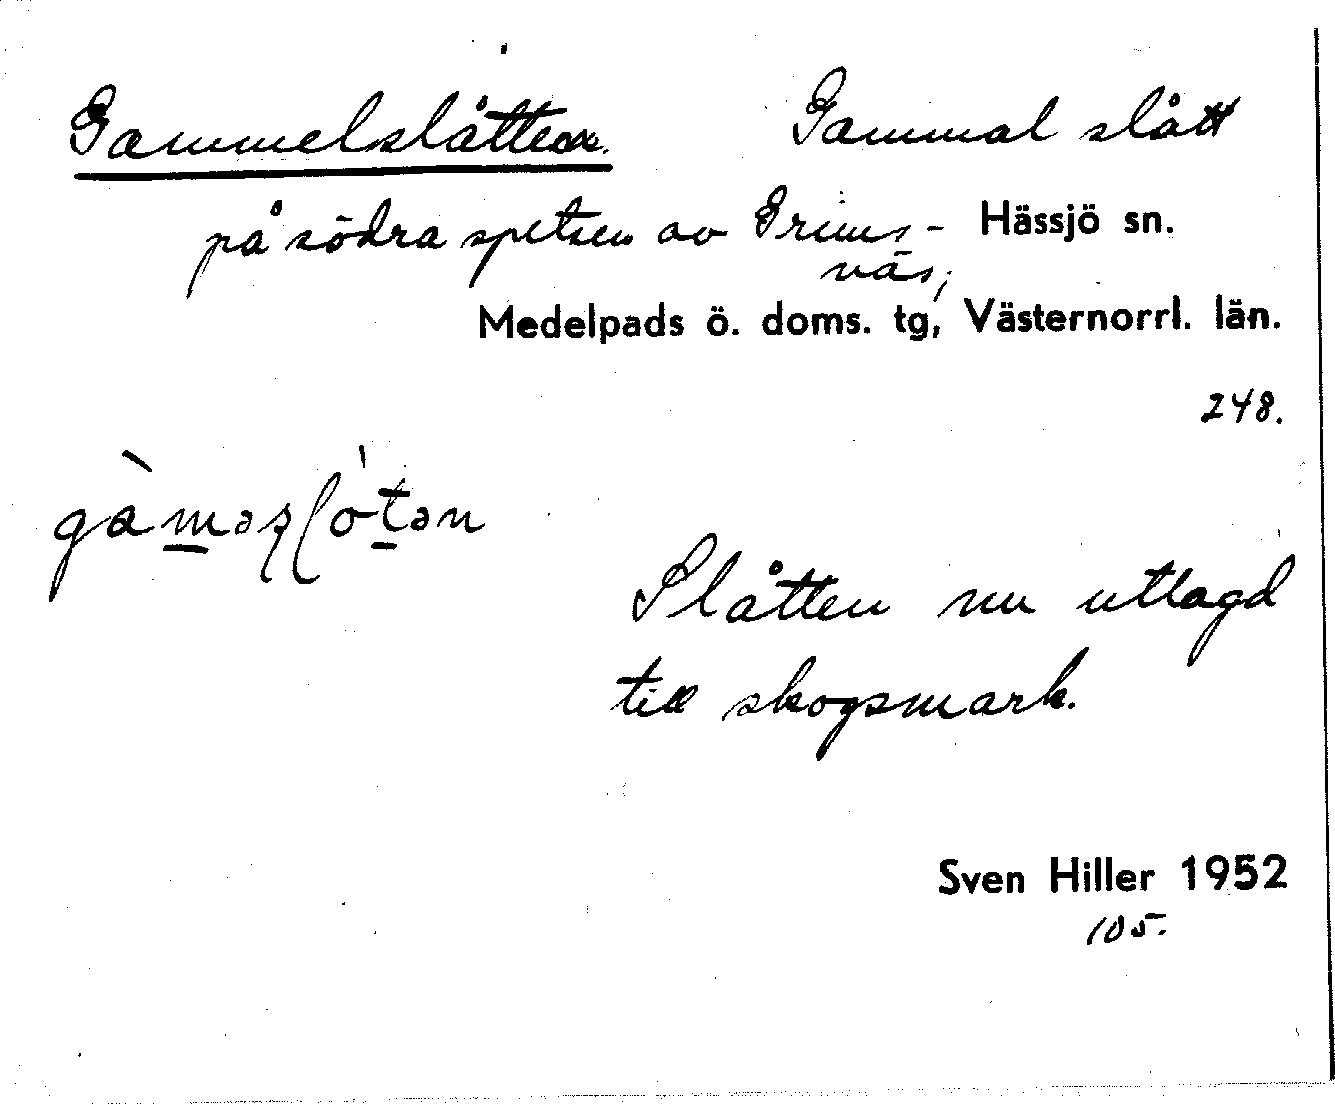 Gammelslåtten. Gammal slått
på södra spetsen av Grims- Hässjö sn.
näs,
Medelpads ö. doms. tg, Västernorrl. län.
248.
Slåtten nu utlagd
till skogsmark.
Sven Hiller 1952
105.